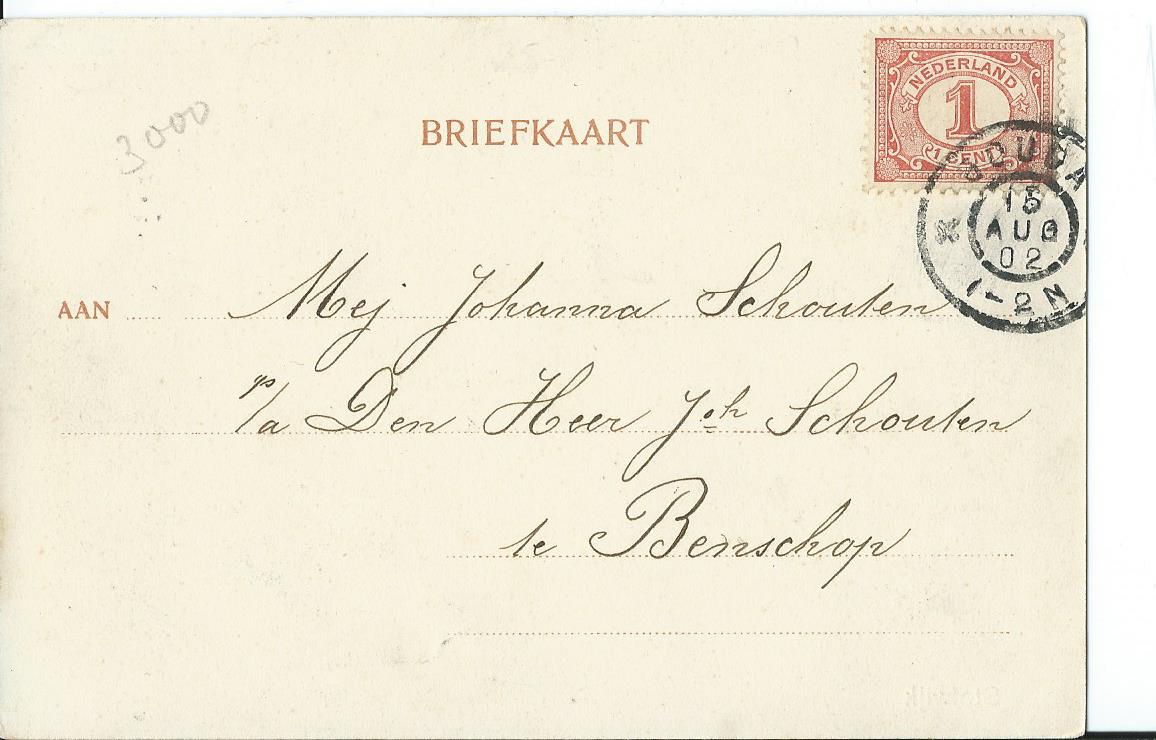 3000
BRIEFKAART
NEDERLAND
1
1 CENT
GOUDA
15
AUG
02
1-2N
AAN Mej Johanna Schouten
p/a Den Heer Joh Schouten
te Benschop